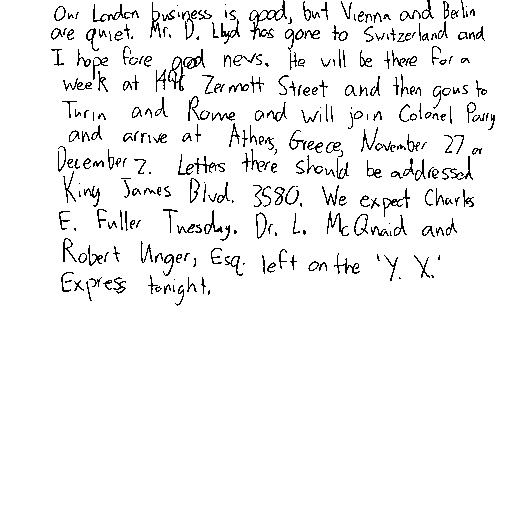 Our London business is good, but Vienna and Berlin
are quiet. Mr. D. Lloyd has gone to Switzerland and
I hope fore good news. He will be there for a
week at Zermott Street and then gous to
Turin and Rome and will join Colonel Parry
and arrive at Athens, Greece, November 27 or
December 2. Letters there should be addressed
King James Blvd. 3580. We expect Charles
E. Fuller Tuesday. Dr. L. McQuaid and
Robert Unger, Esq. left on the 'Y. X.'
Express tonight.